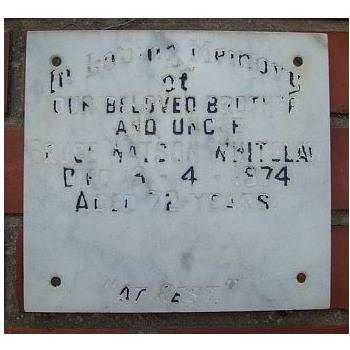 In Loving Memory
of
OUR BELOVED BROTHER
AND UNCLE
WATSON WHITELAW
DIED 4 1974
AGED 72 YEARS
"AT REST"